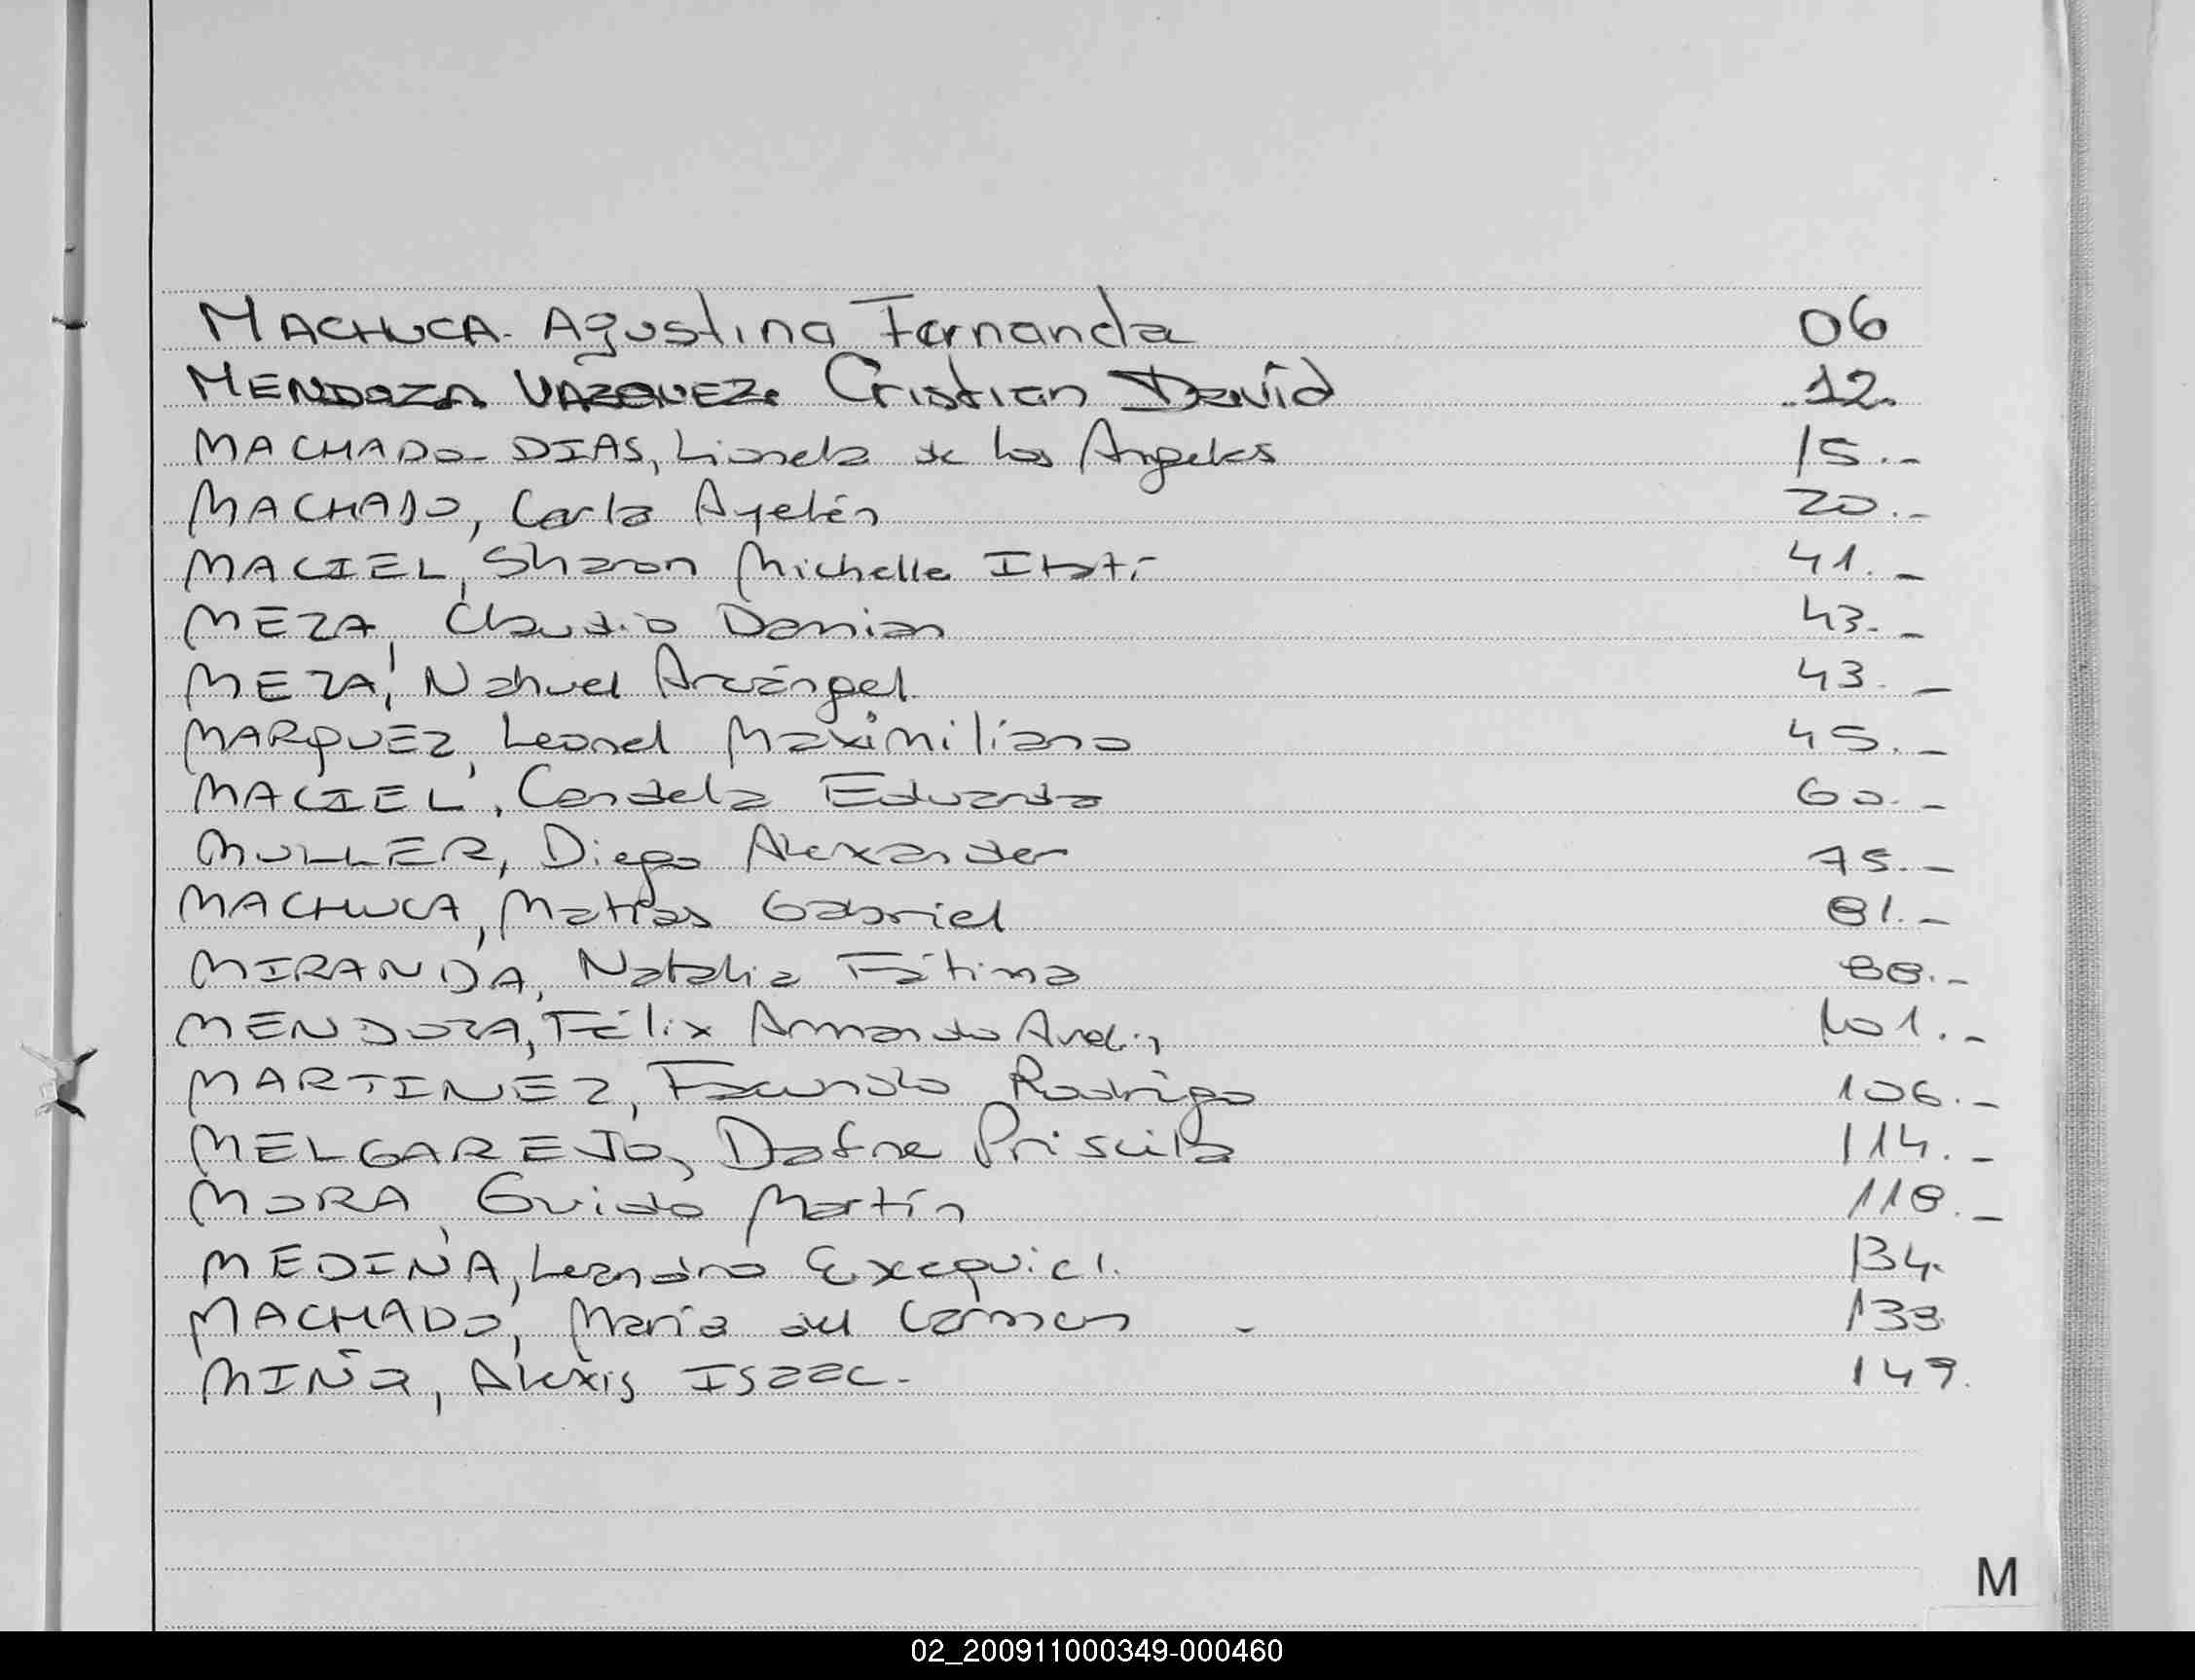 MACHUCA. Agustina Fernanda 06
MENDOZA VAZQUEZ. Cristian David 12.
MACHADO DIAS, Lionela de los Angeles 15.-
MACHADO, Carla Ayelén 20.-
MACIEL, Sharon Michelle Itatí 41.-
MEZA, Claudio Damian 43.-
MEZA, Nahuel Arcángel. 43.-
MARQUEZ, Leonel Maximiliano 45.-
MACIEL, Candela Eduarda 60.-
MULLER, Diego Alexander 75.-
MACHUCA, Matías Gabriel 81.-
MIRANDA, Natalia Fátima 88.-
MENDOZA, Félix Armando 101.-
MARTINEZ, Facundo Rodrigo 106.-
MELGAREJO, Dafne Priscila 114.-
MORA, Guido Martín 118.-
MEDINA, Leandro Exequiel. 134.
MACHADO, María del Carmen -
MIÑO, Alexis Isaac.- 149.
M
02_200911000349-000460